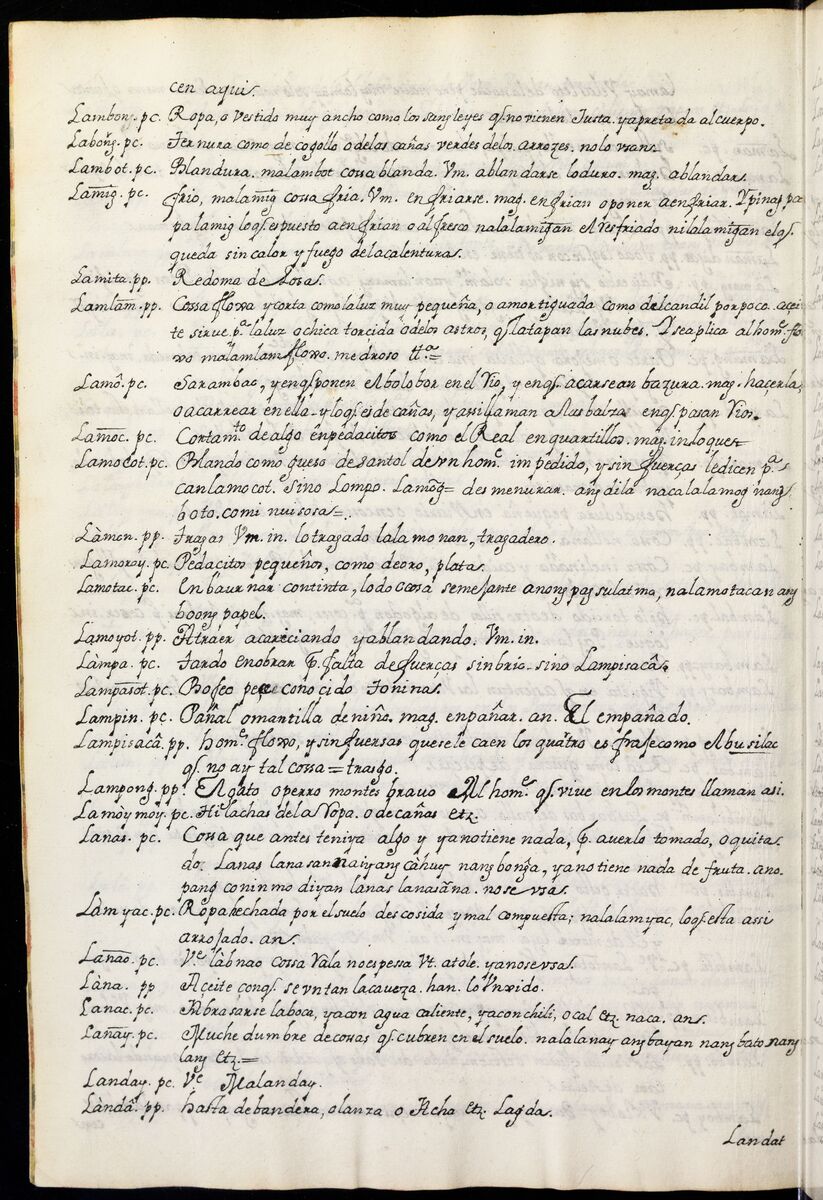 cen aqui.
Lambon̄g. pc. Ropa, o vestido muy ancho como los sangleyes qs. no vienen Justa. yapretada al cuerpo.
Labong̃. pc. Ternura como de cogollo o delos cañas verdes delos arrozes. nolo vsans.
Lambot. pc. Blandura. malambot cossa blanda. Vm. ablandarse loduro. mag. ablandars.
Lamig. pc. frio, malamig cossa fria. Vm. enfriarse. mag. enfrian oponer aenfriar. Ypinag pa
palamig loqs. es puesto aenfrian o alfresco nalalamigan el resfriado nilalamigan elqs.
queda sin calor y fuego de la calenturas.
Lamita. pp. Redoma de Losas.
Lamlam. pp. Cossa flowa y corta como la luz muy pequeña, o amortiguada como delcandil por poco açei
te sirue pa. la luz o chica torcida o delos astros, qs. latapan las nubes. Y se aplica al home. flo
wo malamlam flowo. medroso tta. =
Lamô. pc. Sarambao, y enqs. ponen el bolobor en el Rio, y enqs. acarrean bazura. mag. haçerla,
o acarrear en ella y loqs. es de cañas, y assi llaman a las balza enqs. pasan Rios.
Lamoc. pc. Cortamto. de algo en pedacitos como el Real en quartillos. mag. in loques=
Lamocot. pc. Blando como queso de santol de vn home. impedido, y sin fuerças ledicen pa.
can lamocot. Sino Lompo. Lamog̃= desmenurar. ang dila nacalalamog nang
boto. comi nuisosa=.
Làmon. pp. Tragar Vm. in. lo tragado lala monan, tragadero.
Lamoray. pc. Pedacitos pequeños, como deoro, plata.
Lamotac. pc. Enbaurnar con tinta, lodo cossa semejante anong pag sulat ma, nalamotacan ang
boong papel.
Lamoyot. pp. Atraer acariciando y ablandando. Vm. in.
Làmpa. pc. Tardo enobrar p. falta de fuerças sin brio. sino Lampisacâ.
Lampasot. pc. Bofeo peçe conoçido Toninas.
Lampin. pc. Pañal o mantilla de niño. mag. enpañar. an. El empañado.
Lampisacâ. pp. home. flowo, y sin fuersas que sele caen los quatro es frase como el busilac
qs. no ay tal cossa = trasgo.
Lampong. pp. El gato o perro montes bravo Al home. qs. vive en los montes llaman asi.
Lamòymoy. pc. Hilachas dela Ropa. o de cañas etz.
Lanas. pc. Cossa que antes teniya algo y ya no tiene nada, p. averlo tomado, o quita
do. Lanas lanasan na iyang càhuy nang bong̃a, ya no tiene nada de fruta. ano
pang conin mo diyan lanas lanasãna. no se vsa.
Làmyac. pc. Ropa hechada por el suelo descosida y mal compuesta; nalalamyac, loqs. esta assi
arrojado. an.
Lanao. pc. Ve. làbnao cossa Rala no espessa Vt. atole. ya no se vsa.
Làna. pp Aceite conqs. se vntan la caueza. han. lo Vnxido.
Lanac. pc. Abrasarse la boca, ya con agua caliente, ya con chili, o cal etz. naca. an.
Lañay. pc. Muchedumbre de cossas qs. cubren en el suelo. nalalanay ang bayan nang bato nang
lang etz.=
Landay. pc. Ve. Malanday.
Làndâ. pp. hasta de bandera, o lanza o Acha etz. Lagda.
Landat